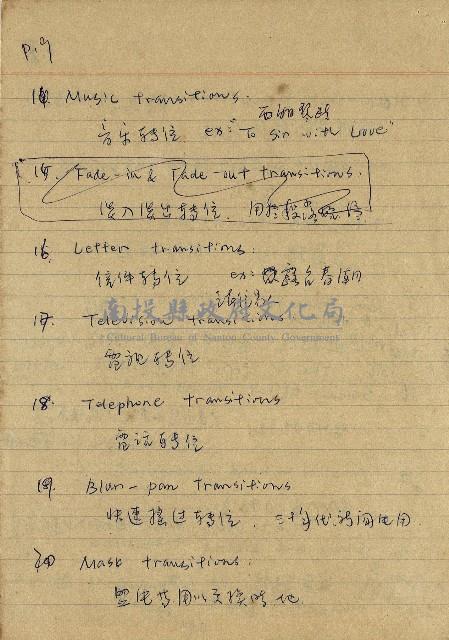 P.9
14. Music transitions.
音乐轉位. ex: "To Sir with Love"
15. Fade-in & Fade-out transitions.
淡入淡出轉位. 用於
16. Letter transitions.
信件轉位 ex:
南投縣政府文化局
17. Television transitions
Cultural Bureau of Nantou County Government
電視轉位
18. Telephone transitions
電話轉位
19. Blur-pan transitions
快速搖过轉位. 三十年代
20 Mask transitions.